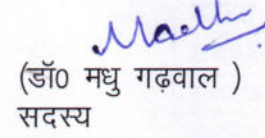 Madhu
(डॉ0 मधु गढ़वाल )
सदस्य